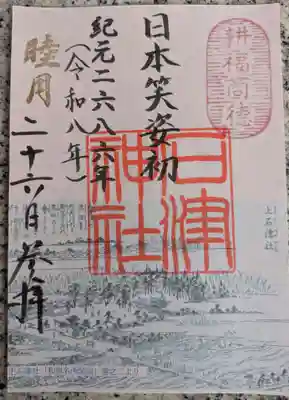 耕福而徳
日本笑姿初
紀元二六八六年
(令和八年)
睦月
二十六日参拝
石津
神社
上石津社